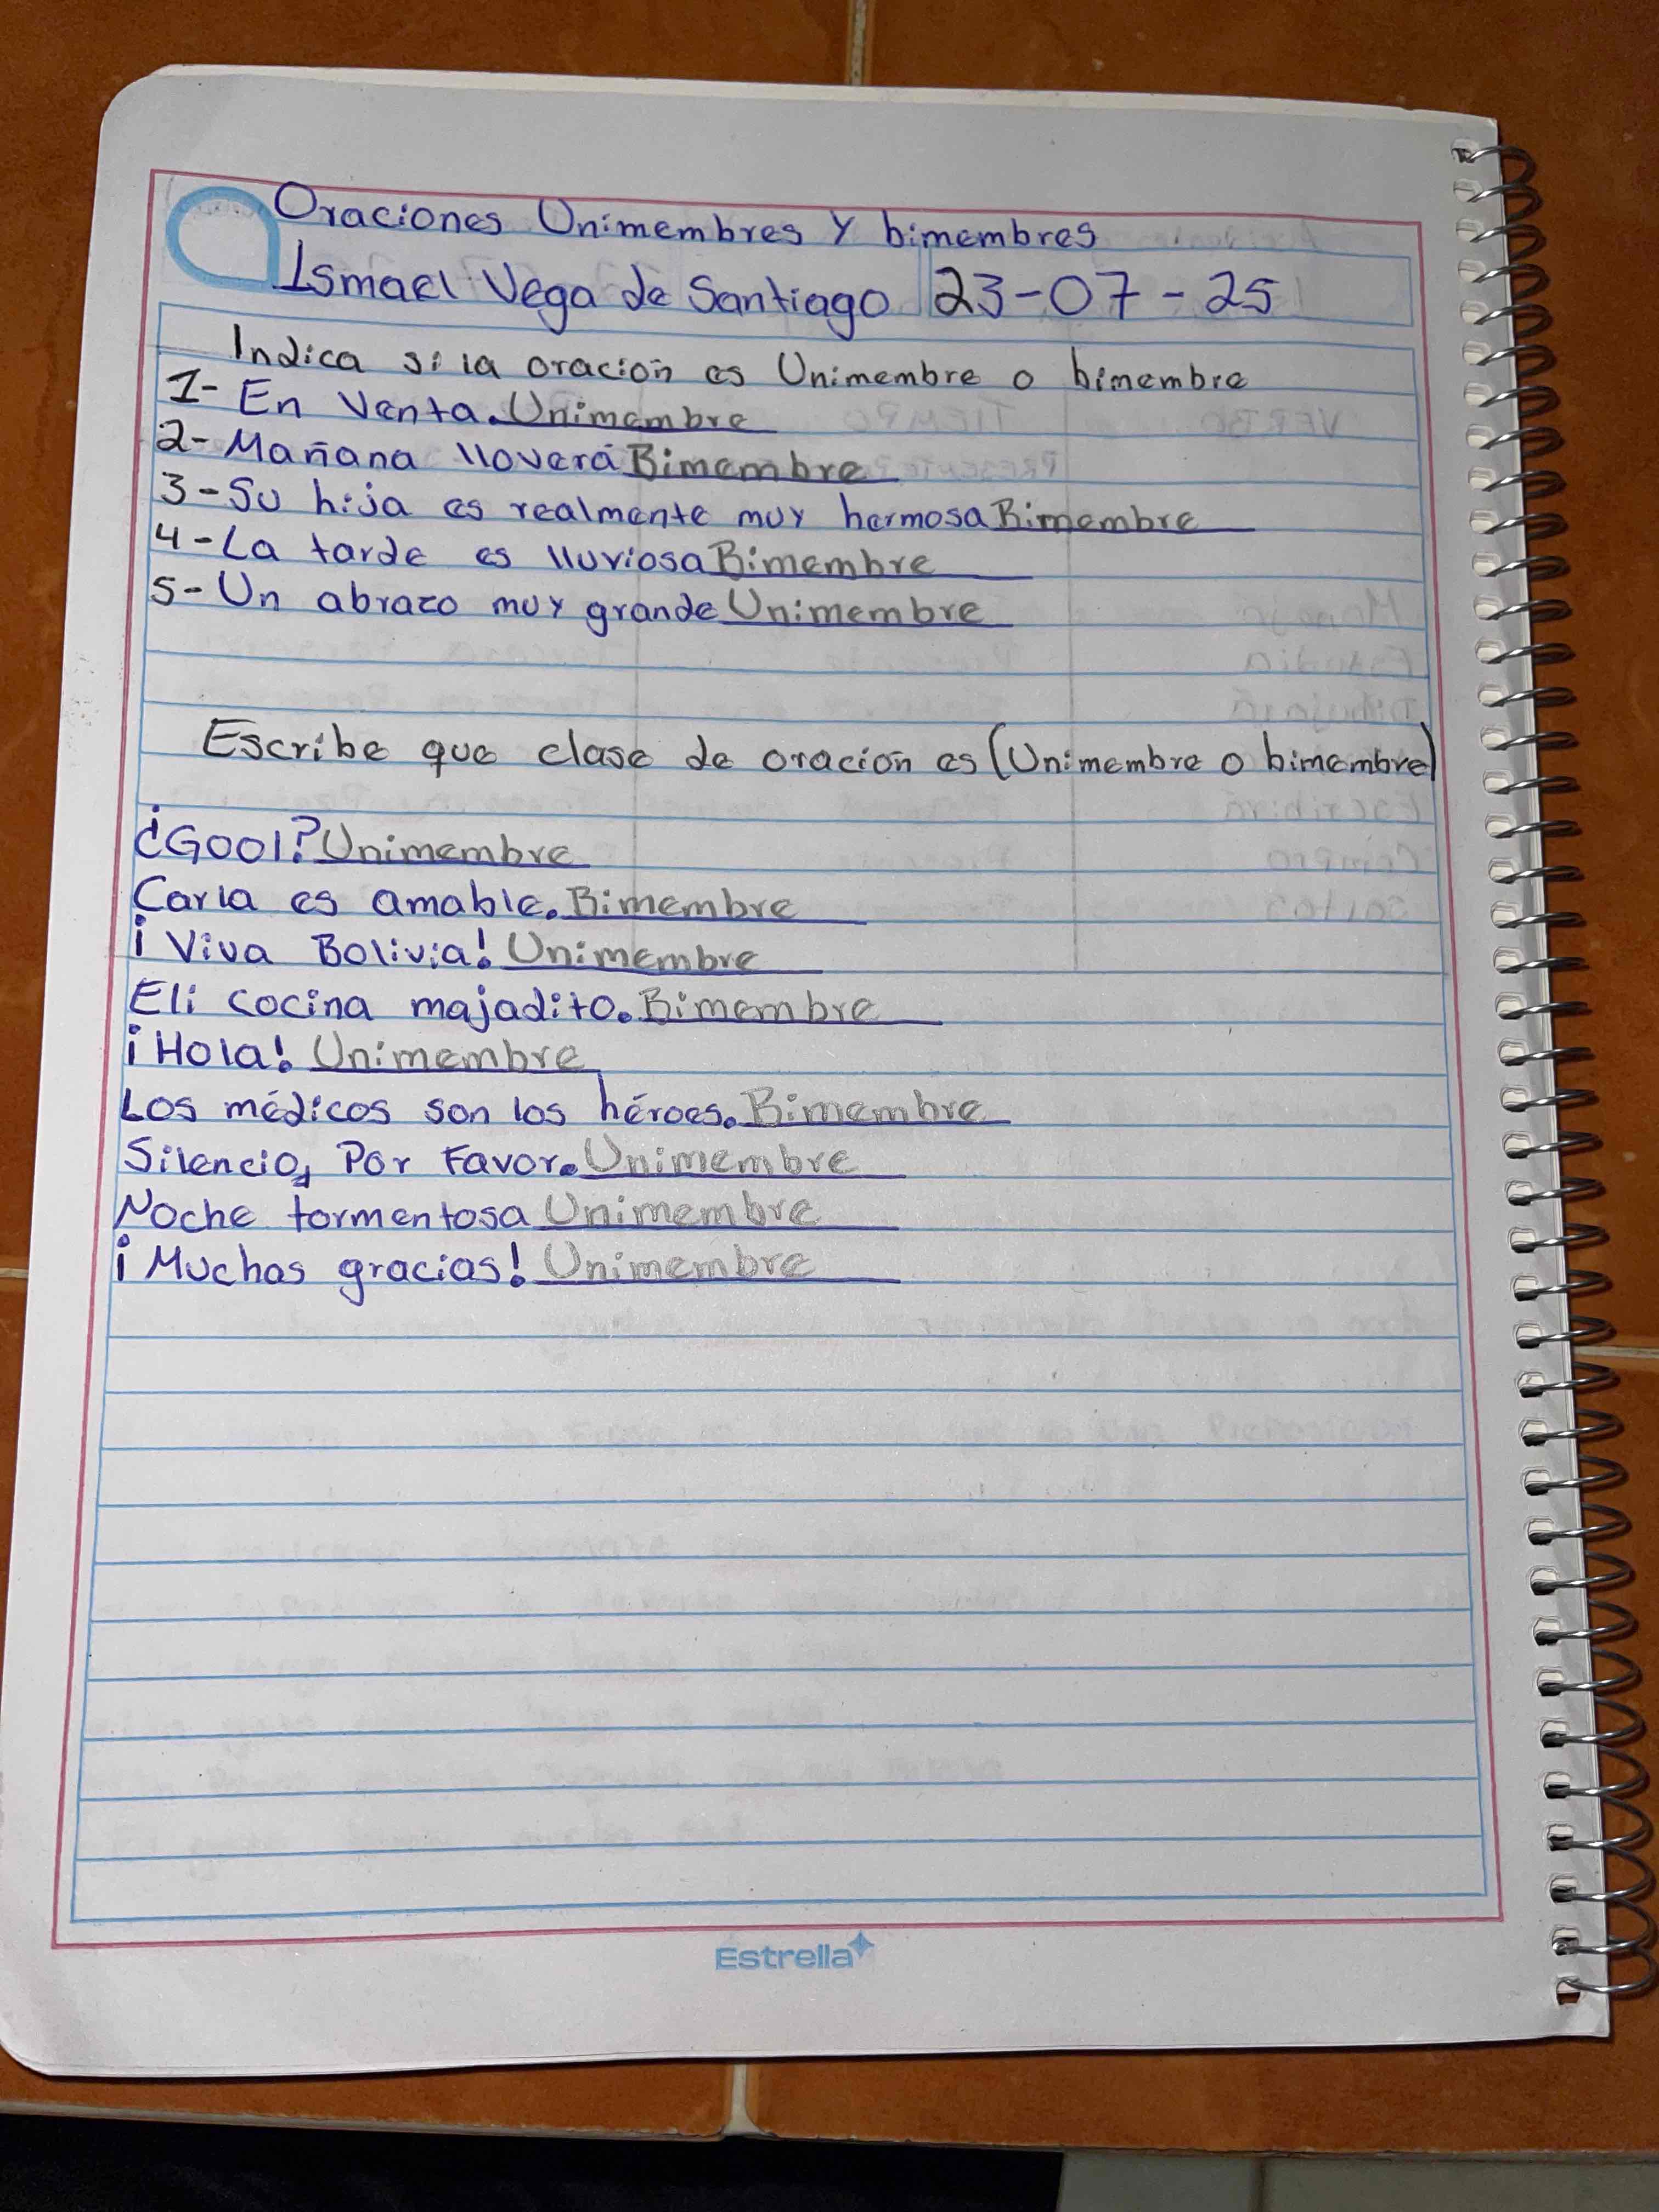 Oraciones Unimembres y bimembres
Ismael Vega de Santiago 23-07-25
Indica si la oración es Unimembre o bimembre
1- En Venta. Unimembre
2- Mañana lloverá Bimembre
3- Su hija es realmente muy hermosa Bimembre
4- La tarde es lluviosa Bimembre
5- Un abrazo muy grande Unimembre
Escribe que clase de oración es (Unimembre o bimembre)
¿Gool? Unimembre
Carla es amable. Bimembre
¡Viva Bolivia! Unimembre
Eli cocina majadito. Bimembre
¡Hola! Unimembre
Los médicos son los héroes. Bimembre
Silencio, Por Favor. Unimembre
Noche tormentosa Unimembre
¡Muchas gracias! Unimembre
Estrella